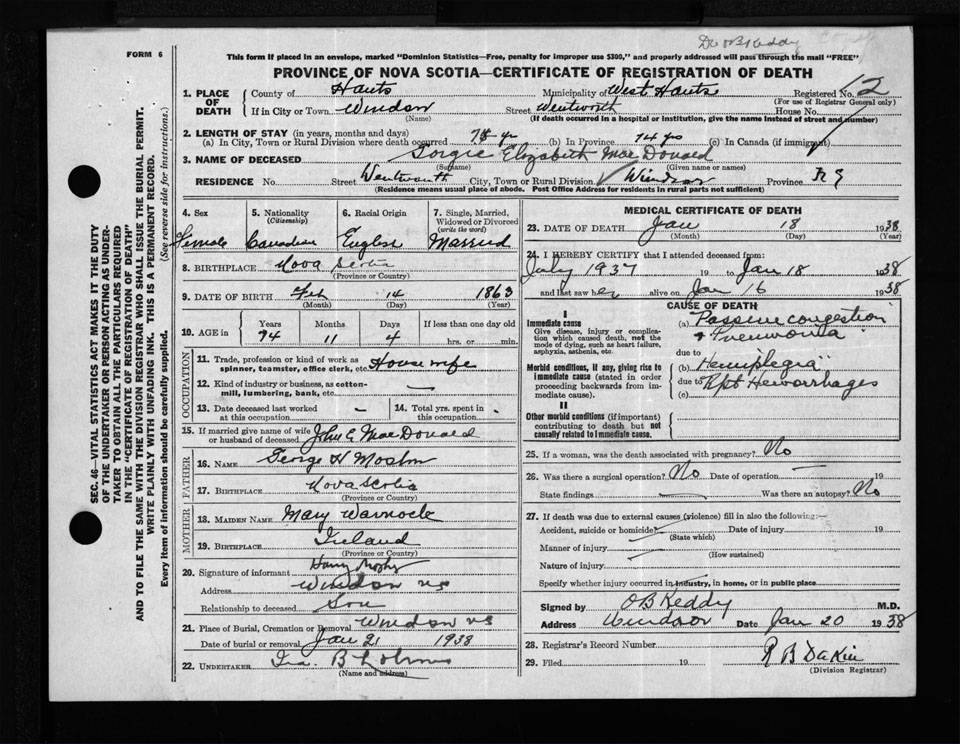 FORM 6
Dr OB Keddy
This form if placed in an envelope, marked "Dominion Statistics—Free, penalty for improper use $300," and properly addressed will pass through the mail "FREE"
PROVINCE OF NOVA SCOTIA—CERTIFICATE OF REGISTRATION OF DEATH
1. PLACE OF DEATH
County of Hants Municipality of West Hants Registered No. 12
(For use of Registrar General only)
If in City or Town Windsor Street Wentworth House No.
(Name) (If death occurred in a hospital or institution, give the name instead of street and number)
2. LENGTH OF STAY (in years, months and days)
(a) In City, Town or Rural Division where death occurred yrs (b) In Province 74 yrs (c) In Canada (if immigrant)
3. NAME OF DECEASED Elizabeth MacDonald
(Surname) (Given name or names)
RESIDENCE No. Street Wentworth City, Town or Rural Division Windsor Province N S
(Residence means usual place of abode. Post Office Address for residents in rural parts not sufficient)
4. Sex
Female
5. Nationality
(Citizenship)
Canadian
6. Racial Origin
English
7. Single, Married,
Widowed or Divorced
(write the word)
Married
8. BIRTHPLACE Nova Scotia
(Province or Country)
9. DATE OF BIRTH Feb 14 1863
(Month) (Day) (Year)
10. AGE in
Years Months Days If less than one day old
74 11 4 hrs. or min.
OCCUPATION
11. Trade, profession or kind of work as
spinner, teamster, office clerk, etc. House wife
12. Kind of industry or business, as cotton-
mill, lumbering, bank, etc. —
13. Date deceased last worked
at this occupation —
14. Total yrs. spent in
this occupation -
15. If married give name of wife
or husband of deceased John E MacDonald
FATHER
16. NAME
17. BIRTHPLACE Nova Scotia
(Province or Country)
MOTHER
18. MAIDEN NAME Mary Warnock
19. BIRTHPLACE Ireland
(Province or Country)
20. Signature of informant Harry
Address Windsor NS
Relationship to deceased Son
21. Place of Burial, Cremation or Removal Windsor NS
Date of burial or removal Jan 21 1938
22. UNDERTAKER Ira B
(Name and address)
MEDICAL CERTIFICATE OF DEATH
23. DATE OF DEATH Jan 18 1938
(Month) (Day) (Year)
24. I HEREBY CERTIFY that I attended deceased from:
July 1937 19 to Jan 18 1938
and last saw her alive on Jan 16 1938
CAUSE OF DEATH
I
Immediate cause
Give disease, injury or complica-
tion which caused death, not the
mode of dying, such as heart failure,
asphyxia, asthenia, etc.
(a) Passive congestion
+ Pneumonia
due to
Morbid conditions, if any, giving rise to
immediate cause (stated in order
proceeding backwards from im-
mediate cause).
(b) Hemiplegia
due to Rpt Hemorrhages
(c)
II
Other morbid conditions (if important)
contributing to death but not
causally related to immediate cause.
25. If a woman, was the death associated with pregnancy? No
26. Was there a surgical operation? No Date of operation — 19
State findings Was there an autopsy? No
27. If death was due to external causes (violence) fill in also the following:—
Accident, suicide or homicide? Date of injury 19
(State which)
Manner of injury
(How sustained)
Nature of injury
Specify whether injury occurred in industry, in home, or in public place
Signed by OB Keddy M.D.
Address Windsor Date Jan 20 1938
28. Registrar's Record Number
29. Filed 19 R B Dakin
(Division Registrar)
SEC. 46—VITAL STATISTICS ACT MAKES IT THE DUTY
OF THE UNDERTAKER OR PERSON ACTING AS UNDER-
TAKER TO OBTAIN ALL THE PARTICULARS REQUIRED
IN THE "CERTIFICATE OF REGISTRATION OF DEATH"
AND TO FILE THE SAME WITH THE DIVISION REGISTRAR WHO SHALL ISSUE THE BURIAL PERMIT.
WRITE PLAINLY WITH UNFADING INK. THIS IS A PERMANENT RECORD.
Every item of information should be carefully supplied. (See reverse side for instructions.)